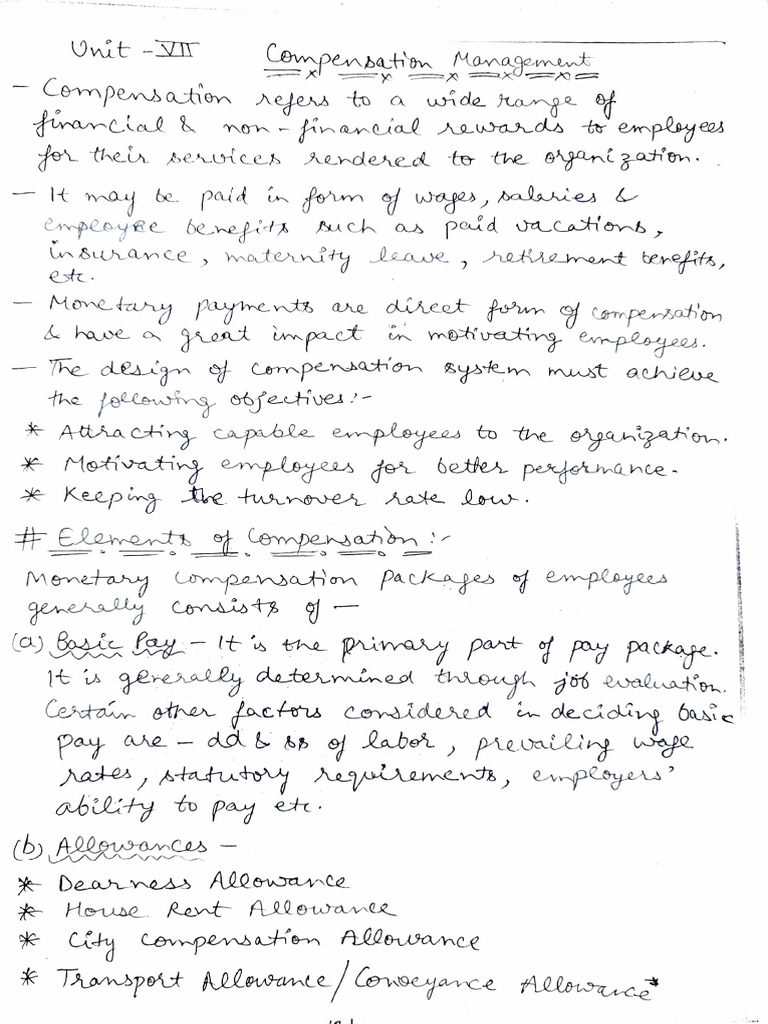 Unit - VII Compensation Management
- Compensation refers to a wide range of
financial & non-financial rewards to employees
for their services rendered to the organization.
- It may be paid in form of wages, salaries &
employee benefits such as paid vacations,
insurance, maternity leave, retirement benefits,
etc.
- Monetary payments are direct form of compensation
& have a great impact in motivating employees.
- The design of compensation system must achieve
the following objectives:-
* Attracting capable employees to the organization.
* Motivating employees for better performance.
* Keeping the turnover rate low.
# Elements of Compensation:-
Monetary compensation packages of employees
generally consists of -
(a) Basic Pay - It is the primary part of pay package.
It is generally determined through job evaluation.
Certain other factors considered in deciding basic
pay are - dd & ss of labor, prevailing wage
rates, statutory requirements, employers'
ability to pay etc.
(b) Allowances -
* Dearness Allowance
* House Rent Allowance
* City Compensation Allowance
* Transport Allowance/Conveyance Allowance*